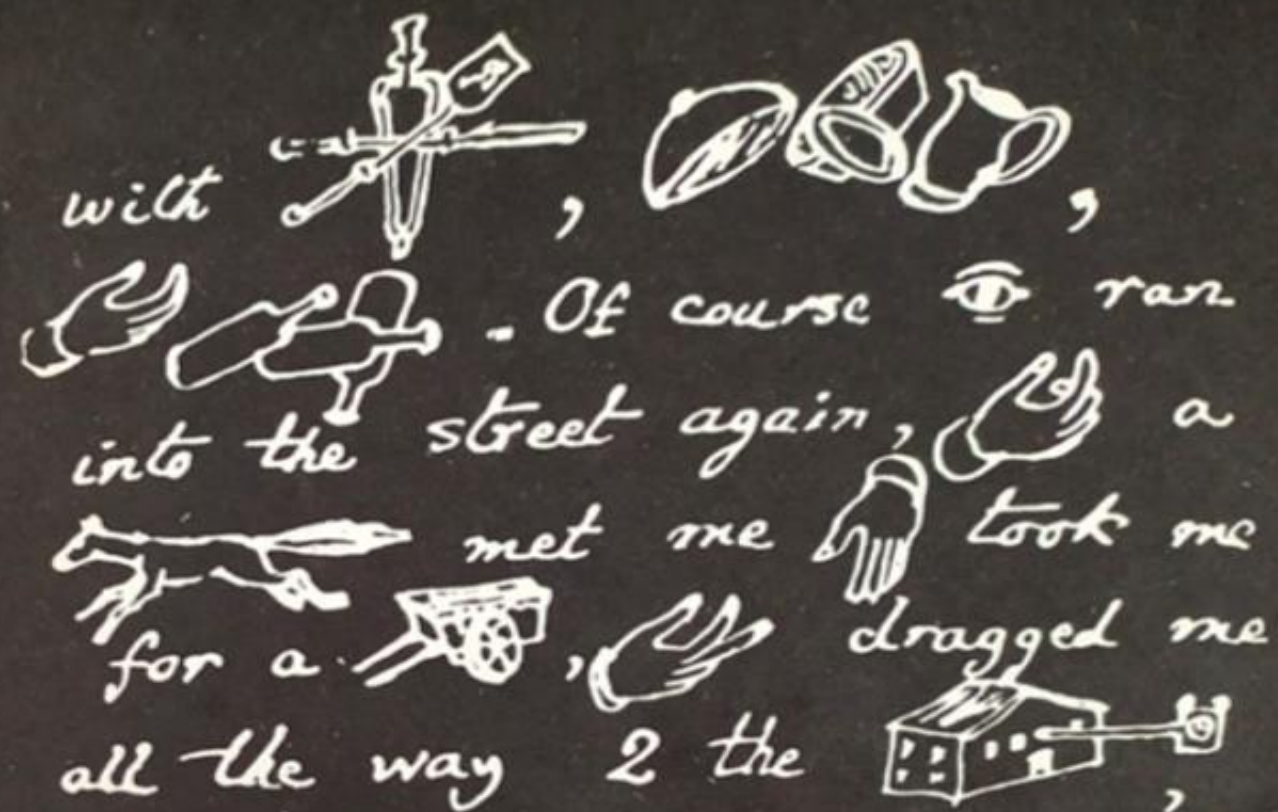 with , ,
. Of course ran
into the street again, a
met me took me
for a , dragged me
all the way 2 the ,